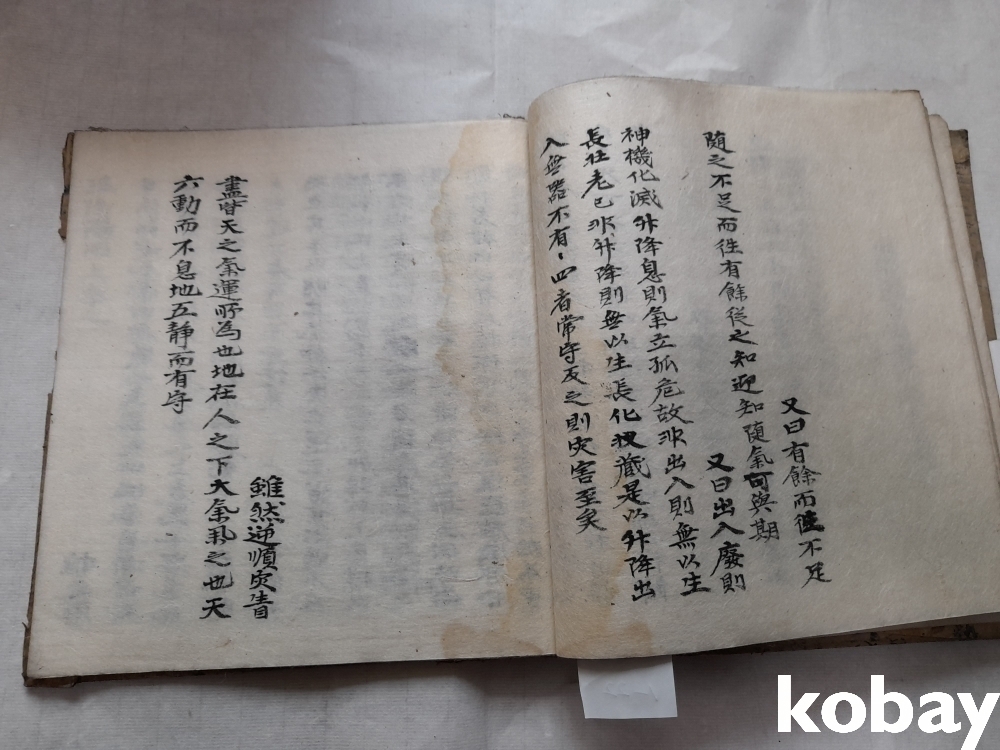 又曰有餘而徃不足
隨之不足而徃有餘從之知迎知隨氣可與期
又曰出入廢則
神機化滅升降息則氣立孤危故非出入則無以生
長壯老已非升降則無以生長化收藏是以升降出
入無器不有、四者常守反之則灾害至矣
雖然逆順灾眚
盡皆天之氣運所爲也地在人之下大氣舉之也天
六動而不息地五静而有守
kobay